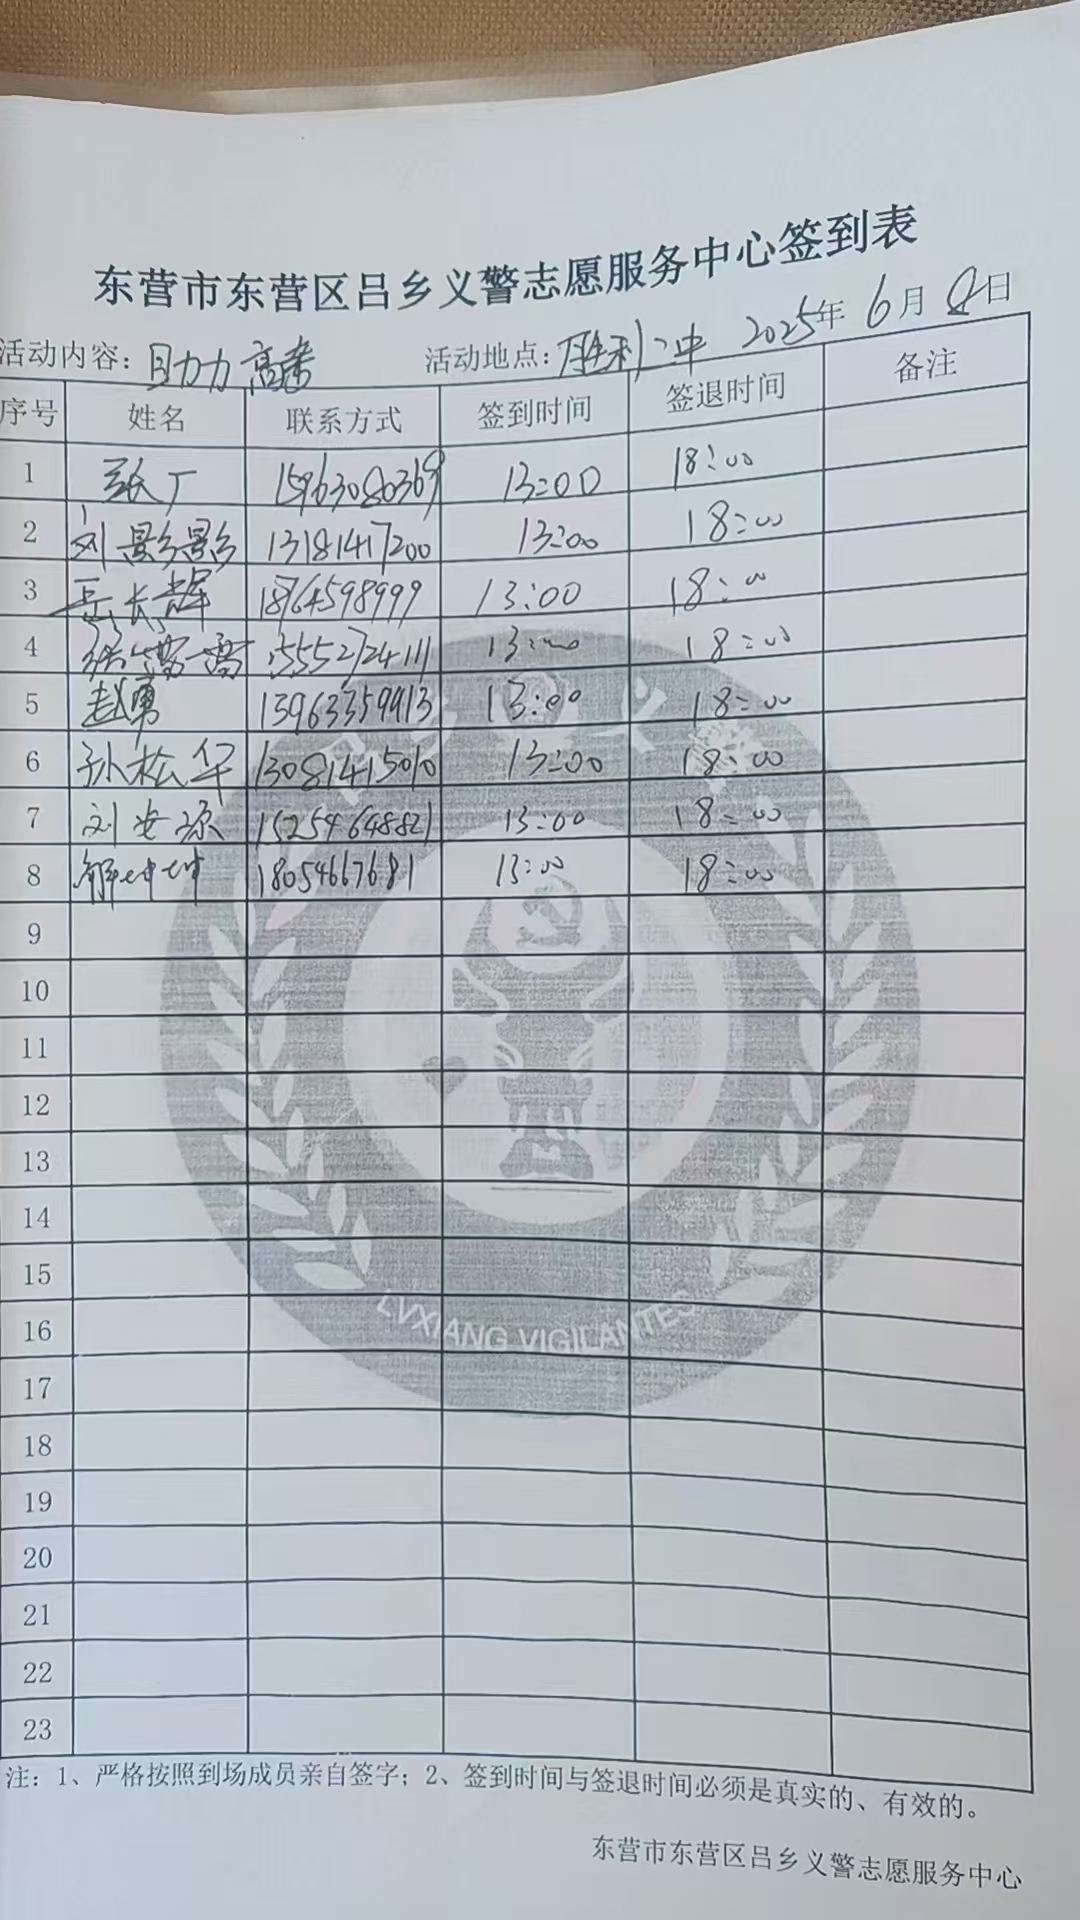 东营市东营区吕乡义警志愿服务中心签到表
活动内容：助力高考 活动地点：胜利二中 2025年6月8日
序号 姓名 联系方式 签到时间 签退时间 备注
1 张广 15963080369 13:00 18:00
2 刘影影 13181417200 13:00 18:00
3 岳长辉 18764598999 13:00 18:00
4 张雷雷 15552724111 13:00 18:00
5 赵勇 13963359913 13:00 18:00
6 孙松华 13081415010 13:00 18:00
7 刘安源 15254648821 13:00 18:00
8 解坤坤 18054667681 13:00 18:00
9
10
11
12
13
14
15
16
17
18
19
20
21
22
23
LVXIANG VIGILANTES
注：1、严格按照到场成员亲自签字；2、签到时间与签退时间必须是真实的、有效的。
东营市东营区吕乡义警志愿服务中心